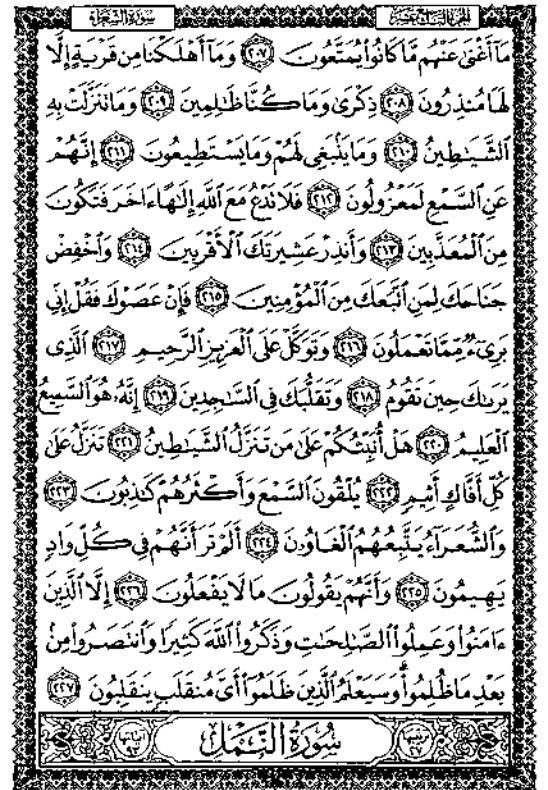 الجزء التاسع عشر
سورة الشعراء
مَآ أَغْنَىٰ عَنْهُم مَّا كَانُوا۟ يُمَتَّعُونَ ﴿٢٠٧﴾ وَمَآ أَهْلَكْنَا مِن قَرْيَةٍ إِلَّا
لَهَا مُنذِرُونَ ﴿٢٠٨﴾ ذِكْرَىٰ وَمَا كُنَّا ظَٰلِمِينَ ﴿٢٠٩﴾ وَمَا تَنَزَّلَتْ بِهِ
ٱلشَّيَٰطِينُ ﴿٢١٠﴾ وَمَا يَنۢبَغِى لَهُمْ وَمَا يَسْتَطِيعُونَ ﴿٢١١﴾ إِنَّهُمْ
عَنِ ٱلسَّمْعِ لَمَعْزُولُونَ ﴿٢١٢﴾ فَلَا تَدْعُ مَعَ ٱللَّهِ إِلَٰهًا ءَاخَرَ فَتَكُونَ
مِنَ ٱلْمُعَذَّبِينَ ﴿٢١٣﴾ وَأَنذِرْ عَشِيرَتَكَ ٱلْأَقْرَبِينَ ﴿٢١٤﴾ وَٱخْفِضْ
جَنَاحَكَ لِمَنِ ٱتَّبَعَكَ مِنَ ٱلْمُؤْمِنِينَ ﴿٢١٥﴾ فَإِنْ عَصَوْكَ فَقُلْ إِنِّى
بَرِىٓءٌ مِّمَّا تَعْمَلُونَ ﴿٢١٦﴾ وَتَوَكَّلْ عَلَى ٱلْعَزِيزِ ٱلرَّحِيمِ ﴿٢١٧﴾ ٱلَّذِى
يَرَىٰكَ حِينَ تَقُومُ ﴿٢١٨﴾ وَتَقَلُّبَكَ فِى ٱلسَّٰجِدِينَ ﴿٢١٩﴾ إِنَّهُۥ هُوَ ٱلسَّمِيعُ
ٱلْعَلِيمُ ﴿٢٢٠﴾ هَلْ أُنَبِّئُكُمْ عَلَىٰ مَن تَنَزَّلُ ٱلشَّيَٰطِينُ ﴿٢٢١﴾ تَنَزَّلُ عَلَىٰ
كُلِّ أَفَّاكٍ أَثِيمٍ ﴿٢٢٢﴾ يُلْقُونَ ٱلسَّمْعَ وَأَكْثَرُهُمْ كَٰذِبُونَ ﴿٢٢٣﴾
وَٱلشُّعَرَآءُ يَتَّبِعُهُمُ ٱلْغَاوُۥنَ ﴿٢٢٤﴾ أَلَمْ تَرَ أَنَّهُمْ فِى كُلِّ وَادٍ
يَهِيمُونَ ﴿٢٢٥﴾ وَأَنَّهُمْ يَقُولُونَ مَا لَا يَفْعَلُونَ ﴿٢٢٦﴾ إِلَّا ٱلَّذِينَ
ءَامَنُوا۟ وَعَمِلُوا۟ ٱلصَّٰلِحَٰتِ وَذَكَرُوا۟ ٱللَّهَ كَثِيرًا وَٱنتَصَرُوا۟ مِنۢ
بَعْدِ مَا ظُلِمُوا۟ وَسَيَعْلَمُ ٱلَّذِينَ ظَلَمُوٓا۟ أَىَّ مُنقَلَبٍ يَنقَلِبُونَ ﴿٢٢٧﴾
سُورَةُ النَّمْلِ